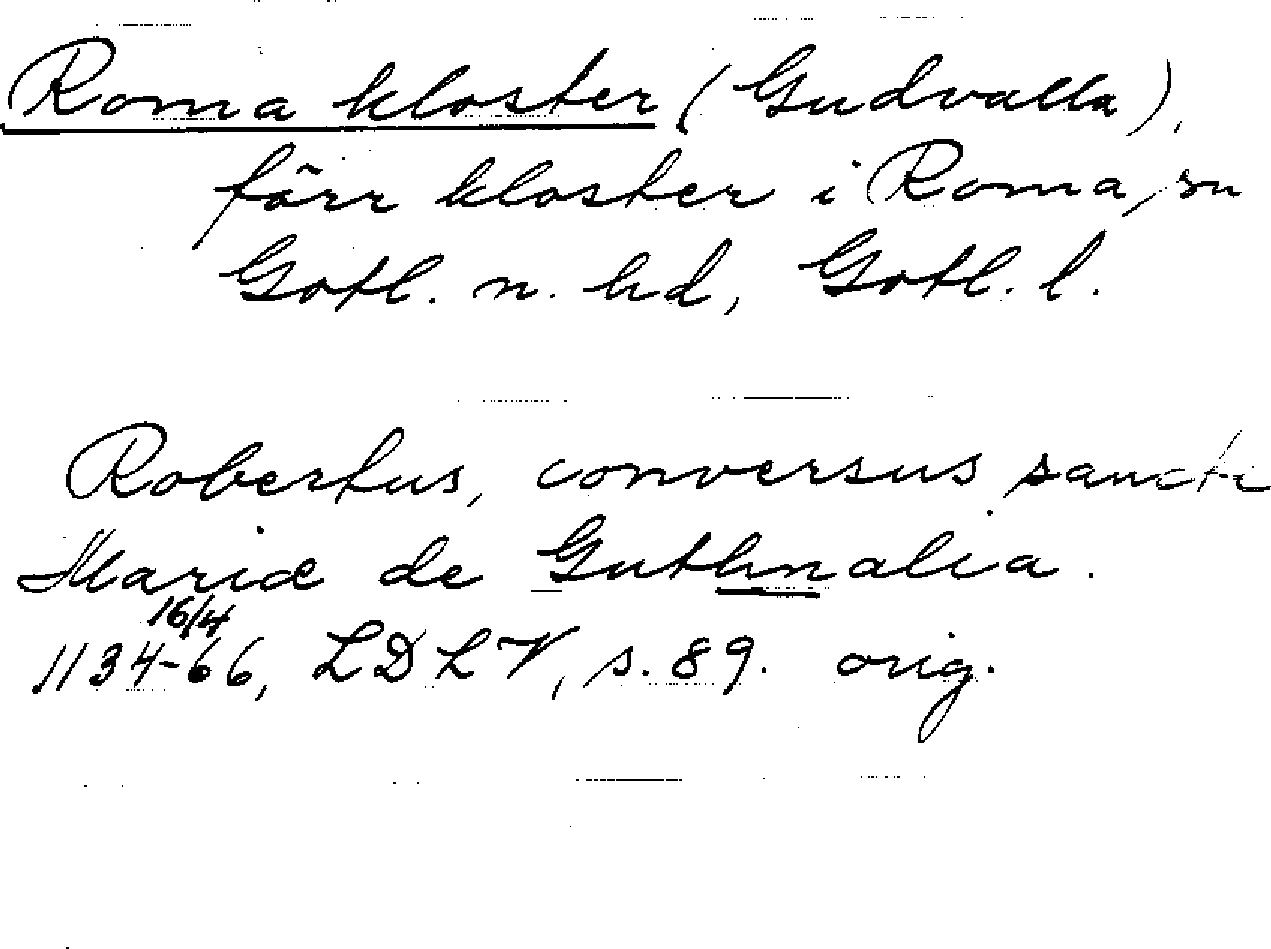 Roma kloster (Gudvalla),
förr kloster i Roma, sn
Gotl. n. hd, Gotl. l.
Robertus, conversus sancte
Mariæ de Guthnalia.
16/4
1134-66, LDLV, s. 89. orig.